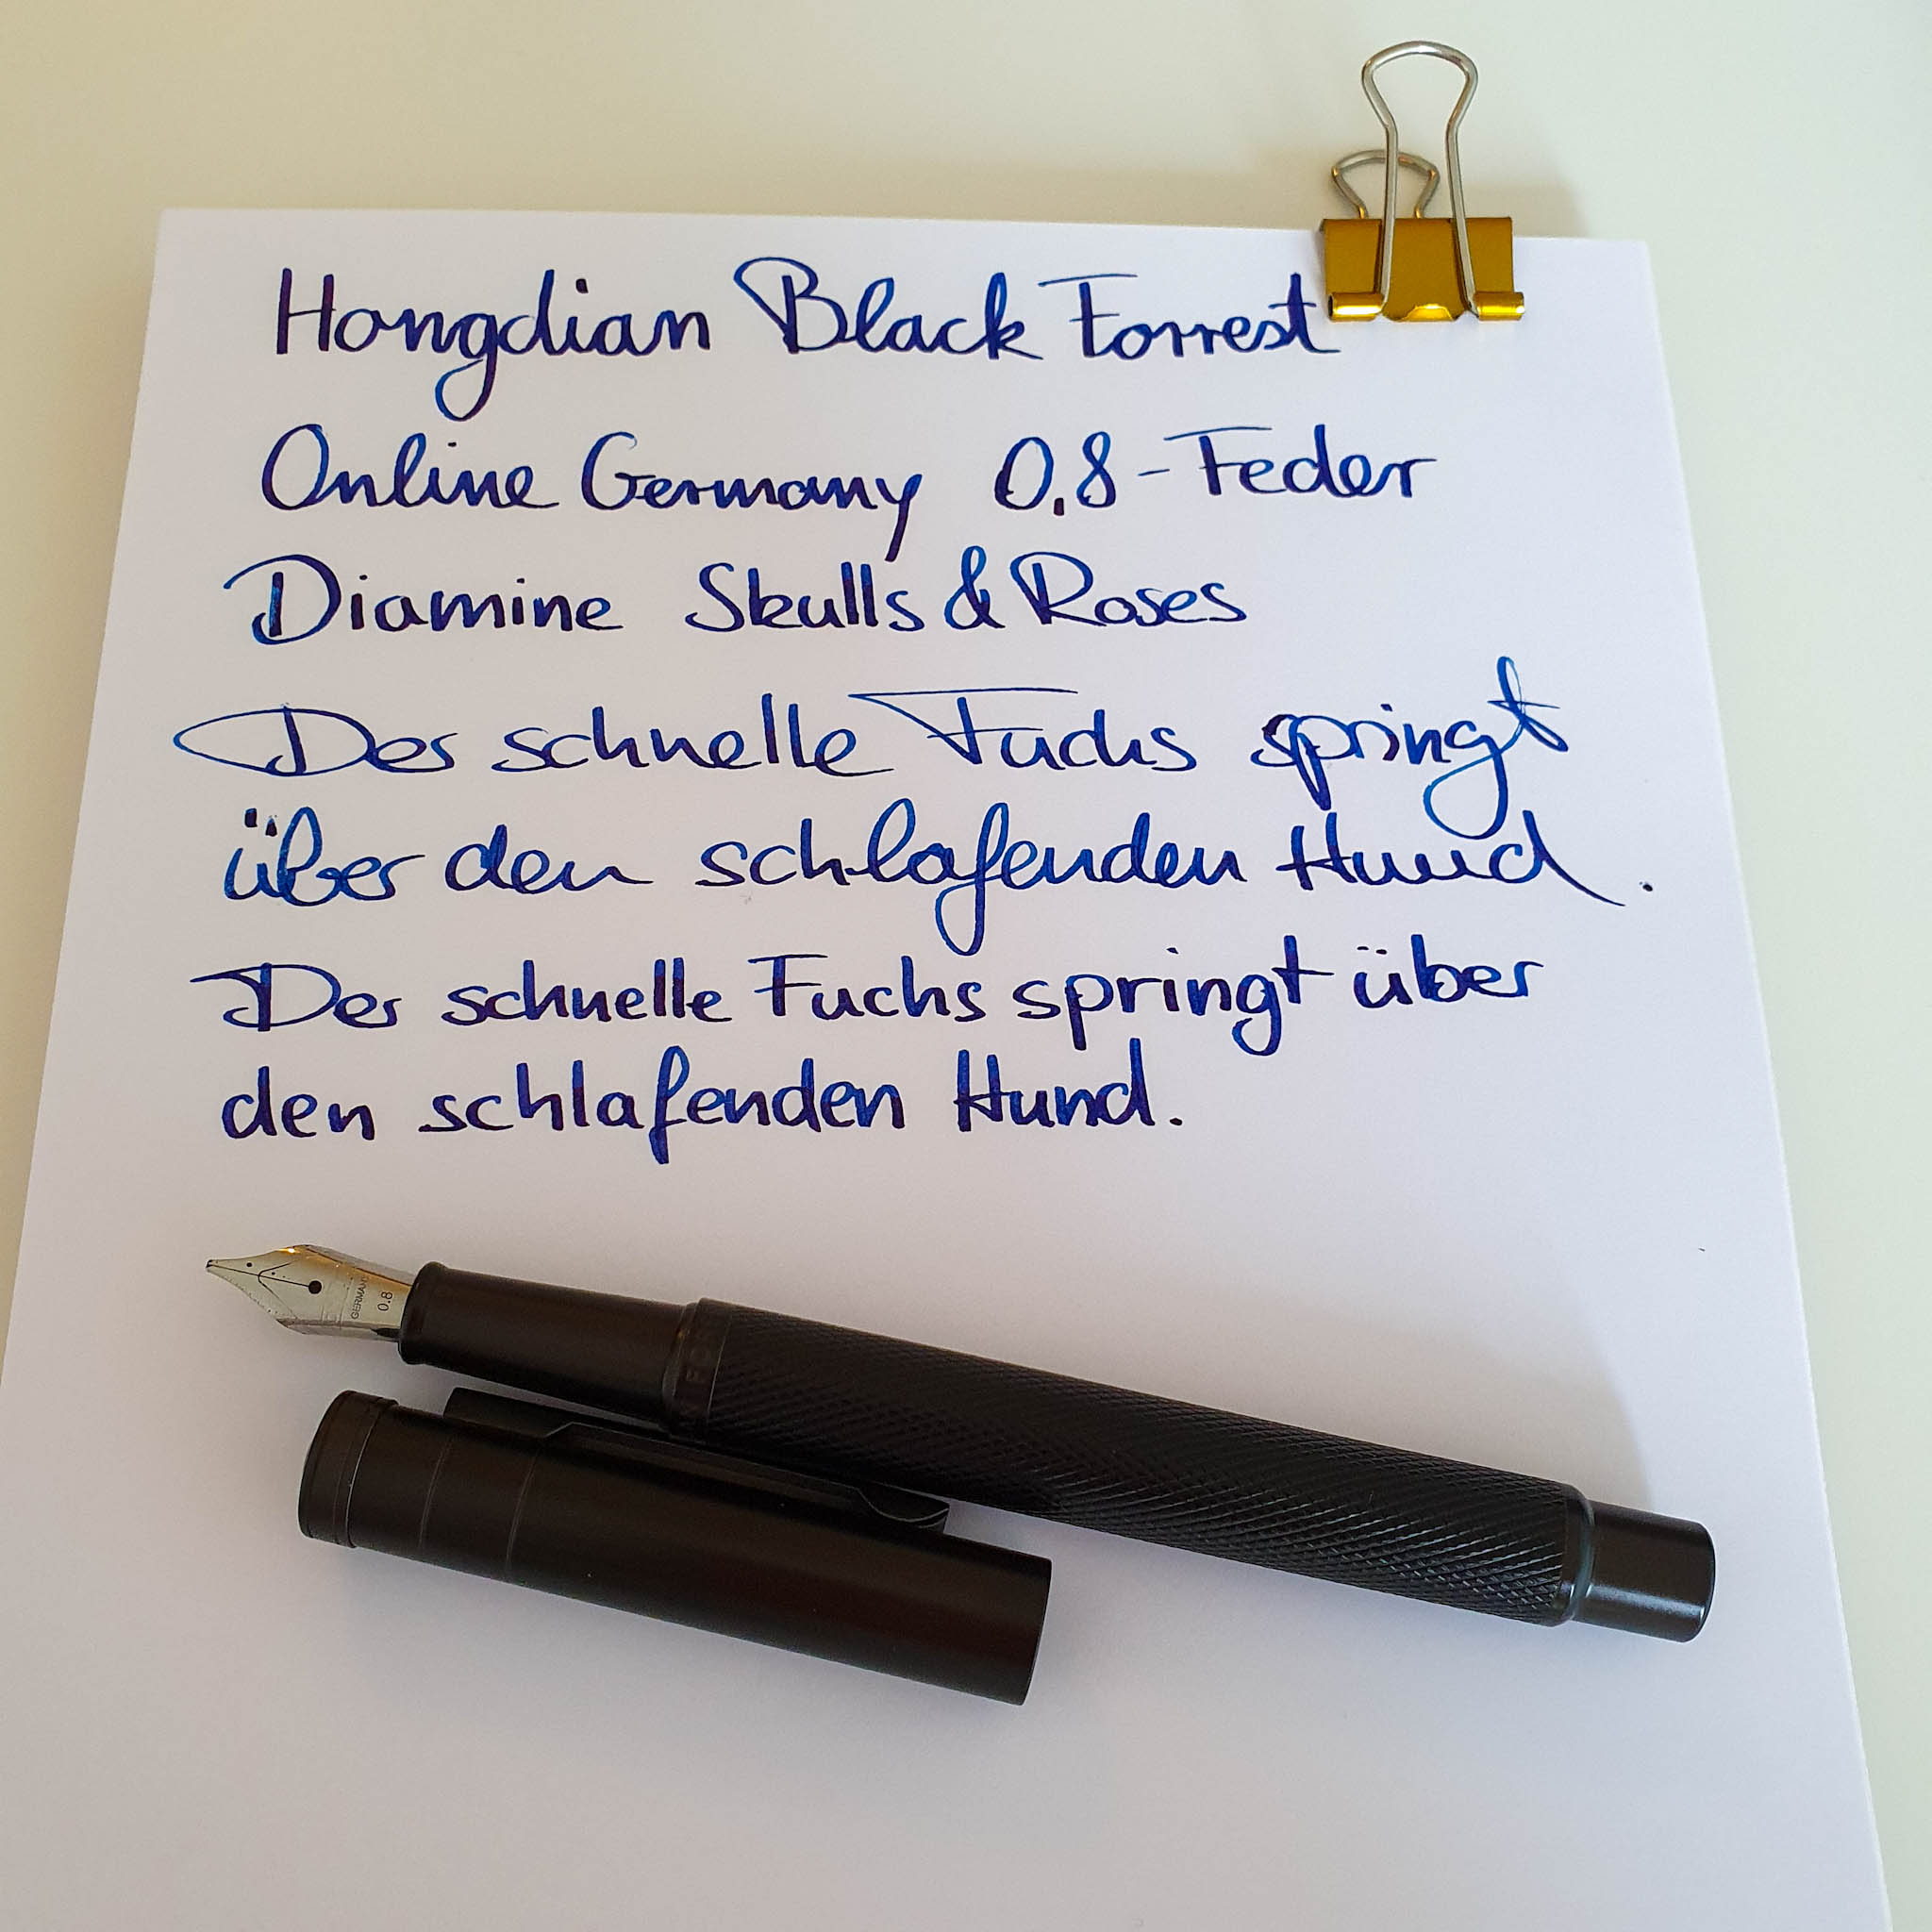 Hongdian Black Forrest
Online Germany 0,8-Feder
Diamine Skulls & Roses
Der schnelle Fuchs springt
über den schlafenden Hund.
Der schnelle Fuchs springt über
den schlafenden Hund.
GERMANY
0.8